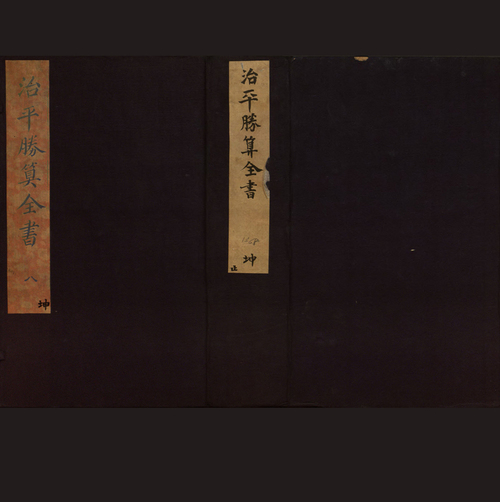 治平勝算全書
八
坤
治平勝算全書
坤
止